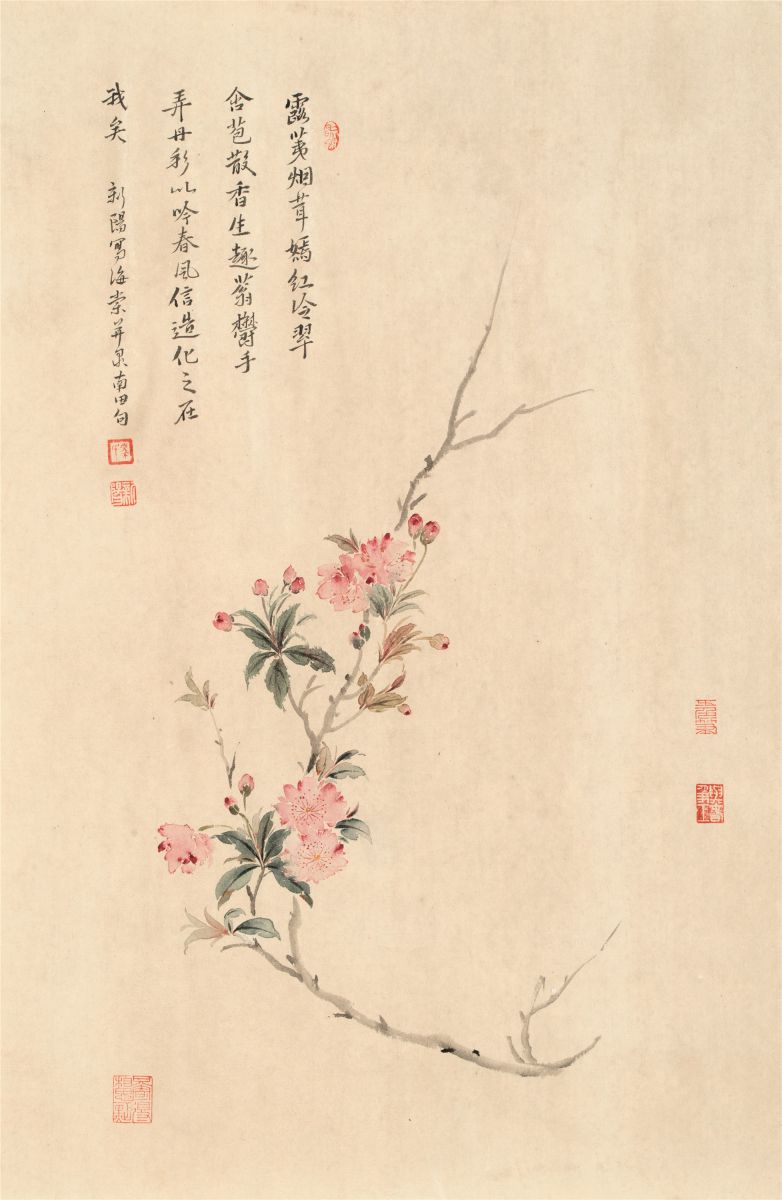 露荑烟茸嫣红冷翠
含苞散香生趣蓊欝手
弄丹彩以吟春风信造化之在
我矣 新陽寫海棠并录南田句